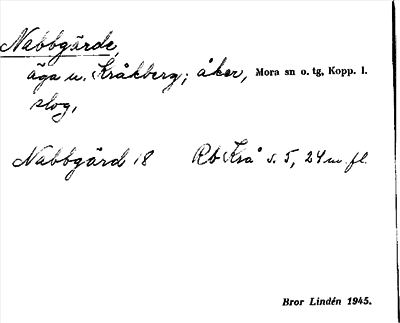 Nabbgärde,
äga u. Kråkberg; åker, Mora sn o. tg, Kopp. l.
slog,
Nabbgärd 18 Rb Krå s. 5, 24 m. fl.
Bror Lindén 1945.